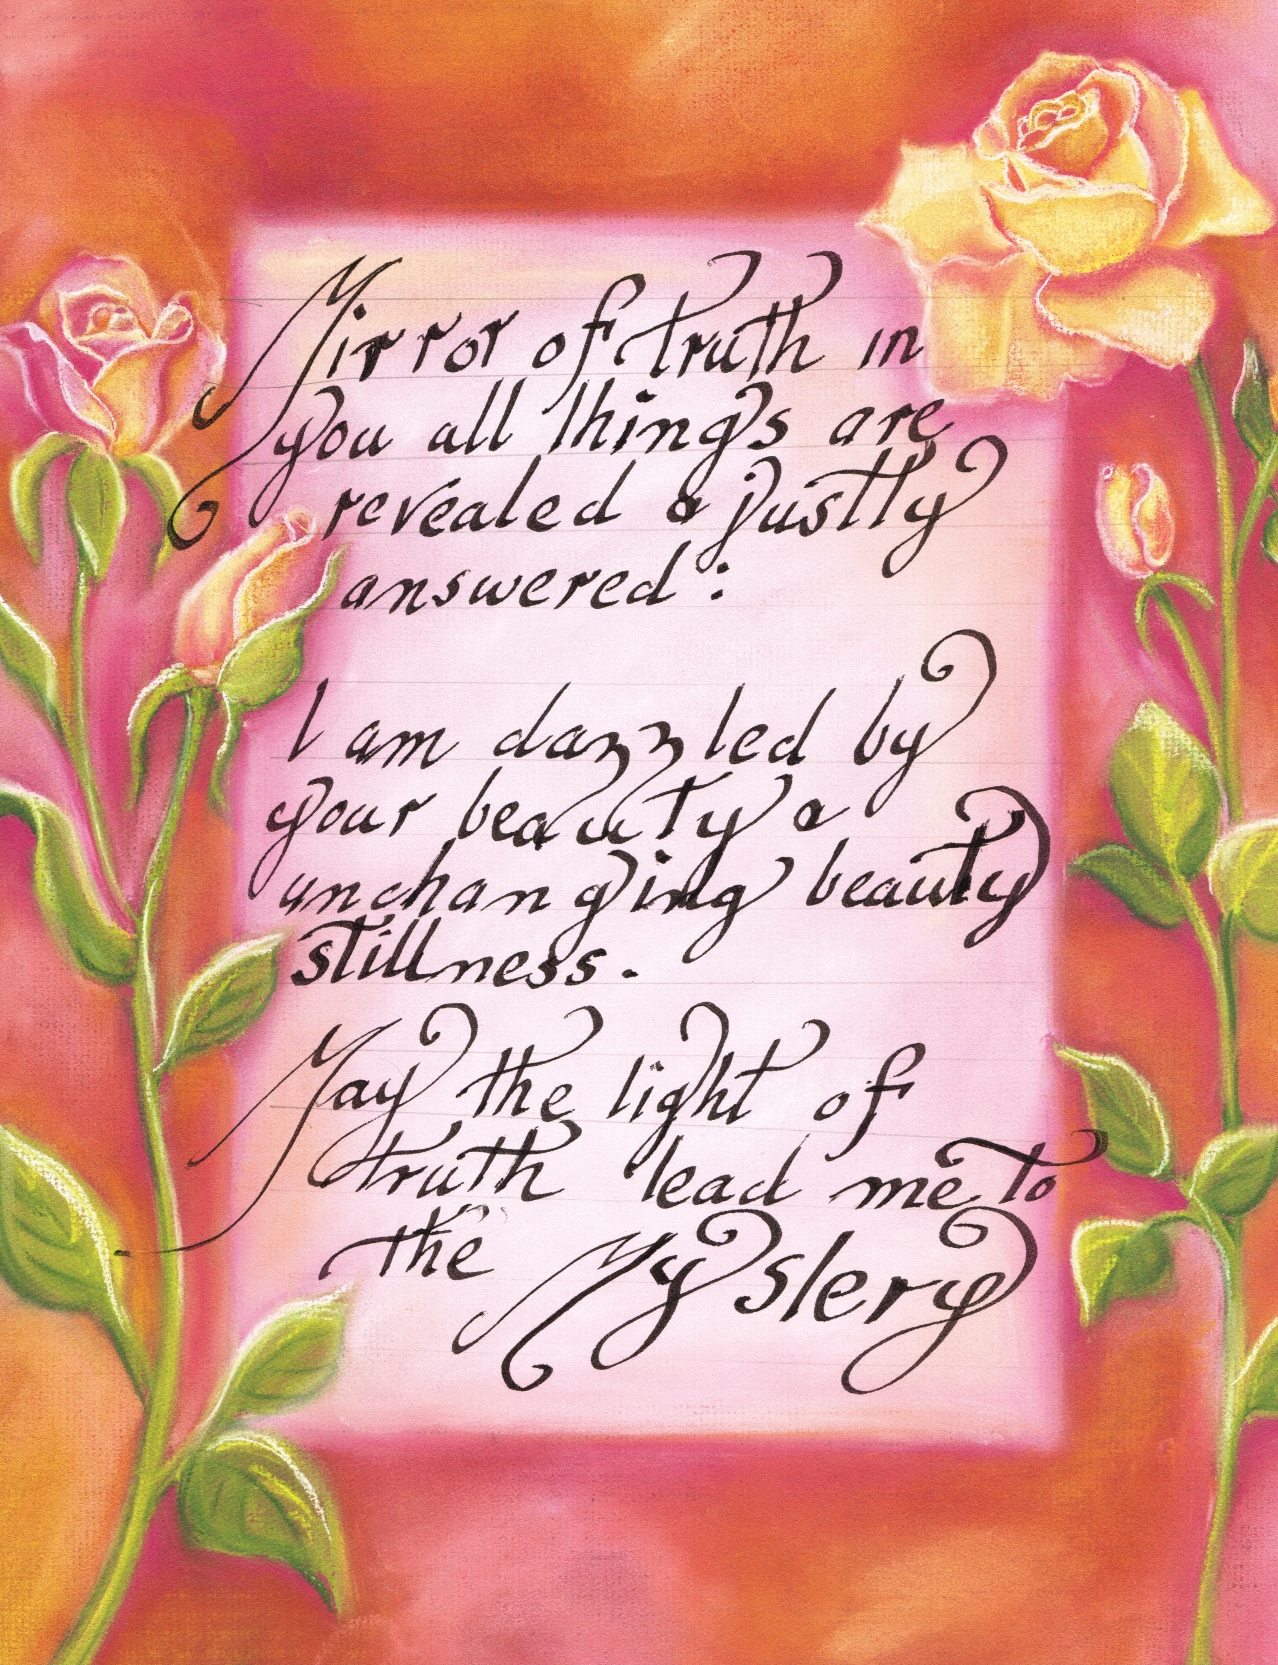 Mirror of truth in
you all things are
revealed & justly
answered :
I am dazzled by
your beauty &
unchanging beauty
stillness.
May the light of
truth lead me to
the Mystery